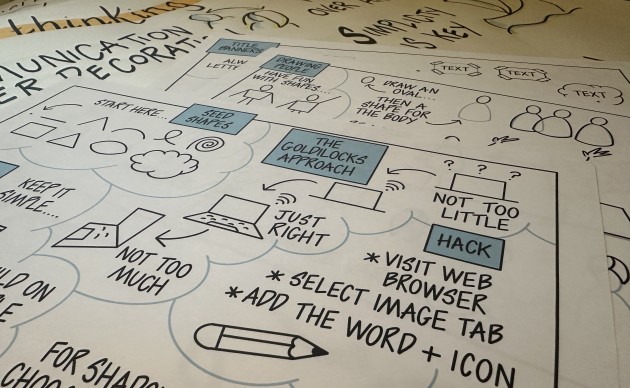 thinking
SIMPLICITY
IS KEY
OVER
COMMUNICATION
OVER DECORATI
TITLE
BANNERS
DRAWING
PEOPLE
HAVE FUN
WITH SHAPES...
DRAW AN
OVAL...
THEN A
SHAPE FOR
THE BODY
TEXT
TEXT
TEXT
START HERE...
SEED
SHAPES
THE
GOLDILOCKS
APPROACH
? ? ?
NOT TOO
LITTLE
JUST
RIGHT
NOT TOO
MUCH
KEEP IT
SIMPLE....
HACK
* VISIT WEB
BROWSER
* SELECT IMAGE TAB
* ADD THE WORD + ICON
ON
FOR